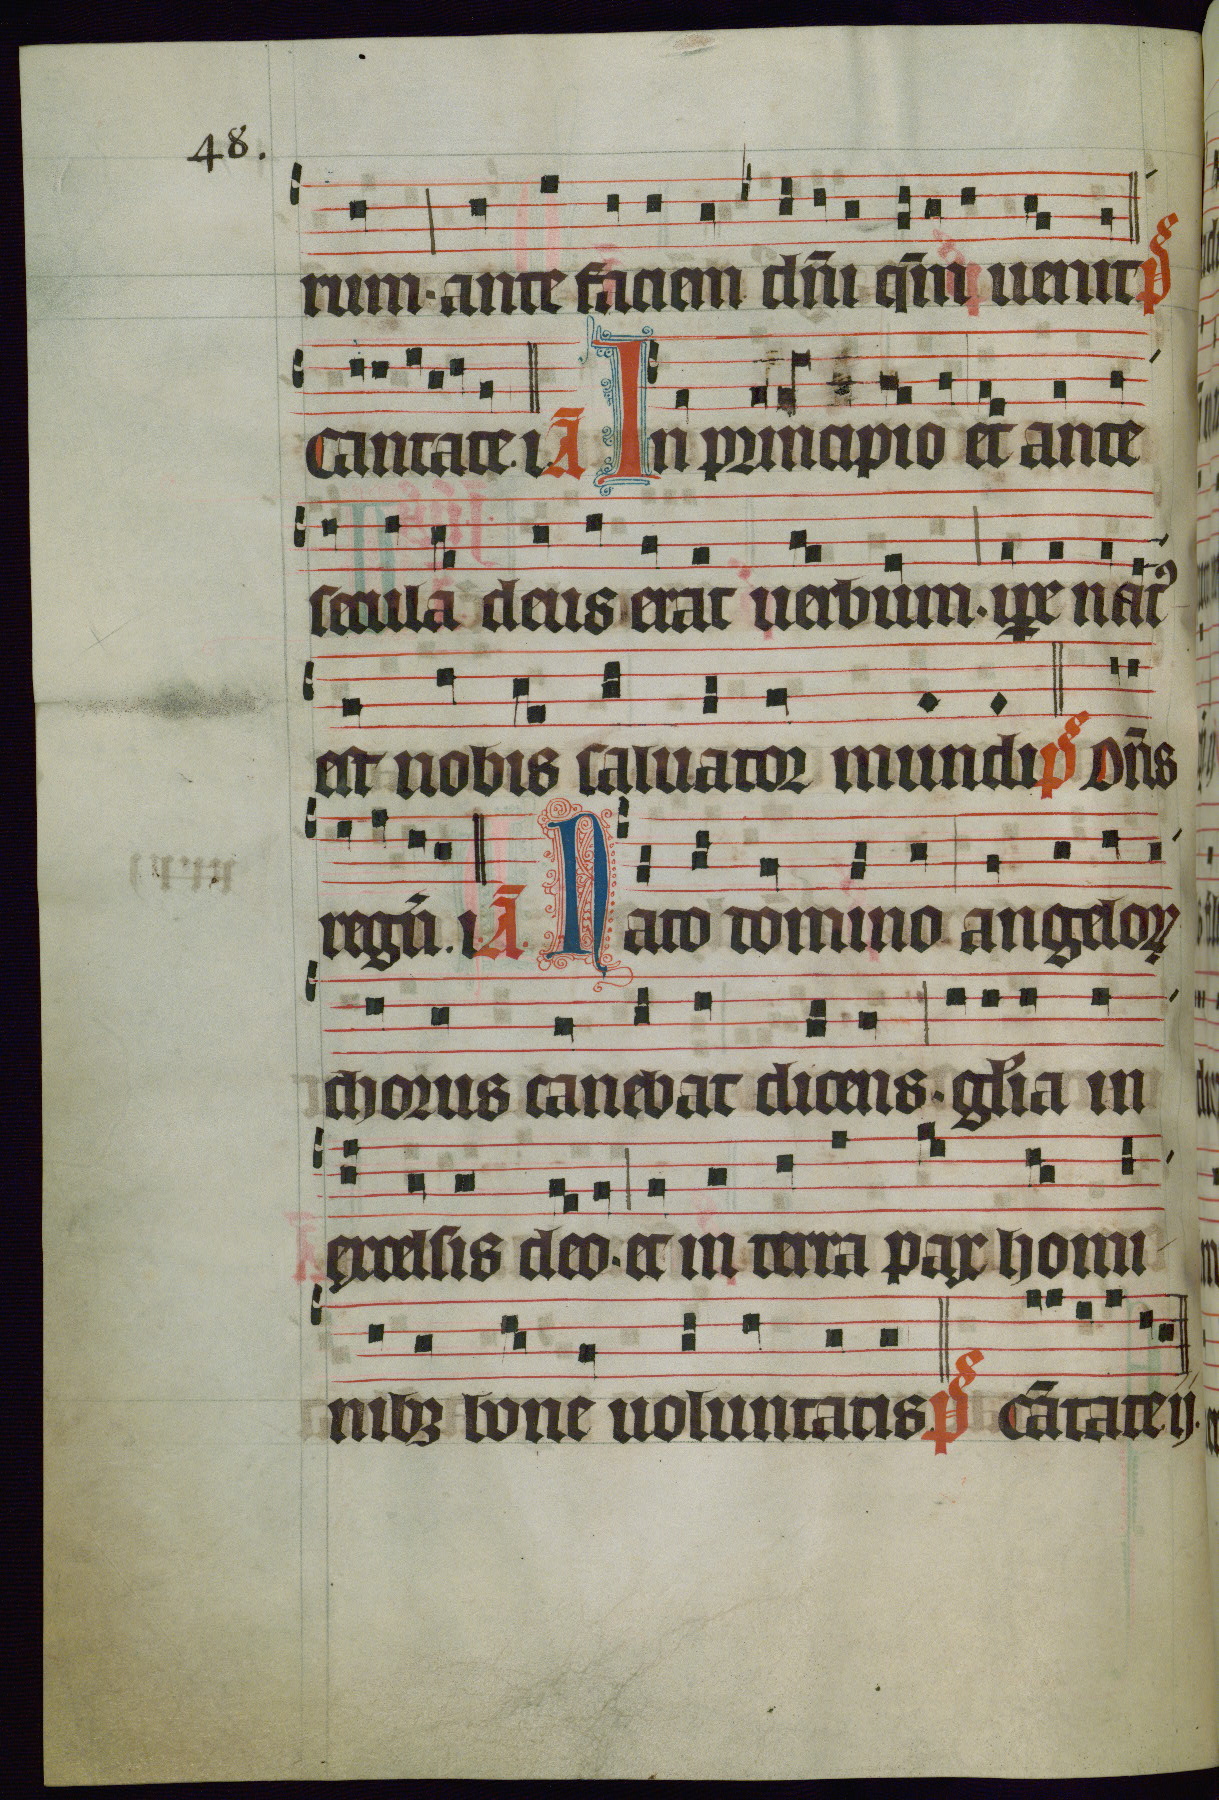 48.
rum· ante faciem dn̄i qm̄ uenit p̄s
Cantate· i· Ā In principio et ante
secula deus erat uerbum· ip̄e natꝰ
est nobis saluator mundi p̄s Dn̄s
regn̄. i· Ā. Nato domino angeloꝝ
chorus canebat dicens· gl̄ia in
excelsis deo· et in terra pax homi
nibꝫ bone uoluntatis p̄s Cātate ij.